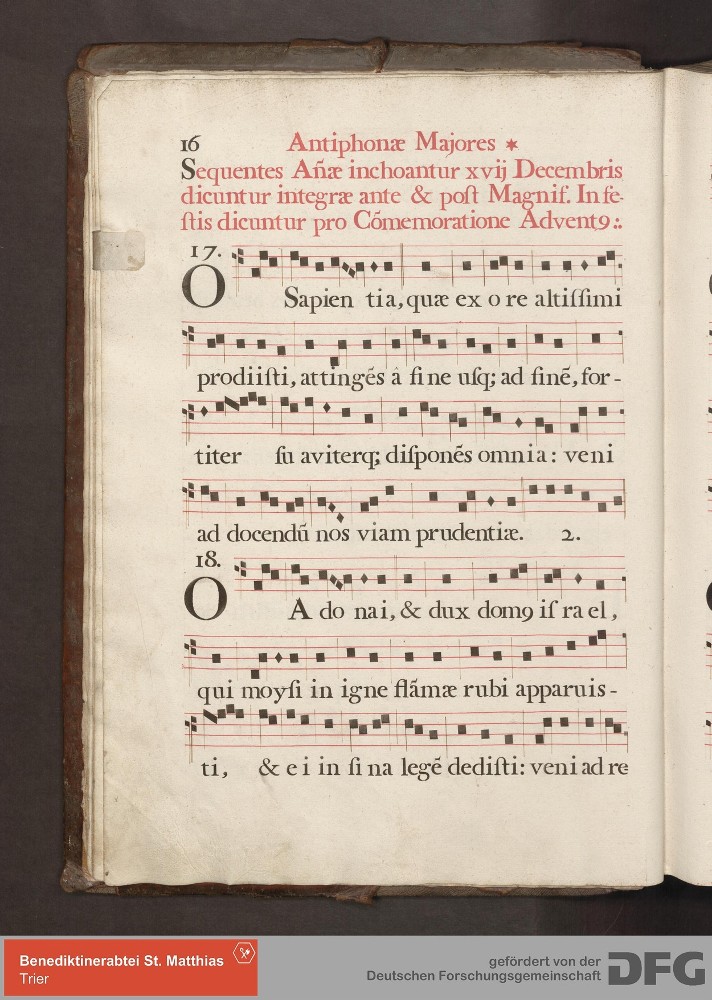 16 Antiphonæ Majores *
Sequentes Añæ inchoantur xvij Decembris
dicuntur integræ ante & poſt Magnif. In fe-
ſtis dicuntur pro Cõmemoratione Adventꝯ:.
17.
O Sapien tia, quæ ex o re altiſſimi
prodiiſti, attingẽs â fi ne uſq; ad finẽ, for-
titer ſu aviterq; diſponẽs omnia: veni
ad docendũ nos viam prudentiæ. 2.
18.
O A do nai, & dux domꝯ iſ ra el,
qui moyſi in igne flãmæ rubi apparuis-
ti, & e i in ſi na legẽ dediſti: veni ad re
Benediktinerabtei St. Matthias
Trier
gefördert von der
Deutschen Forschungsgemeinschaft
DFG